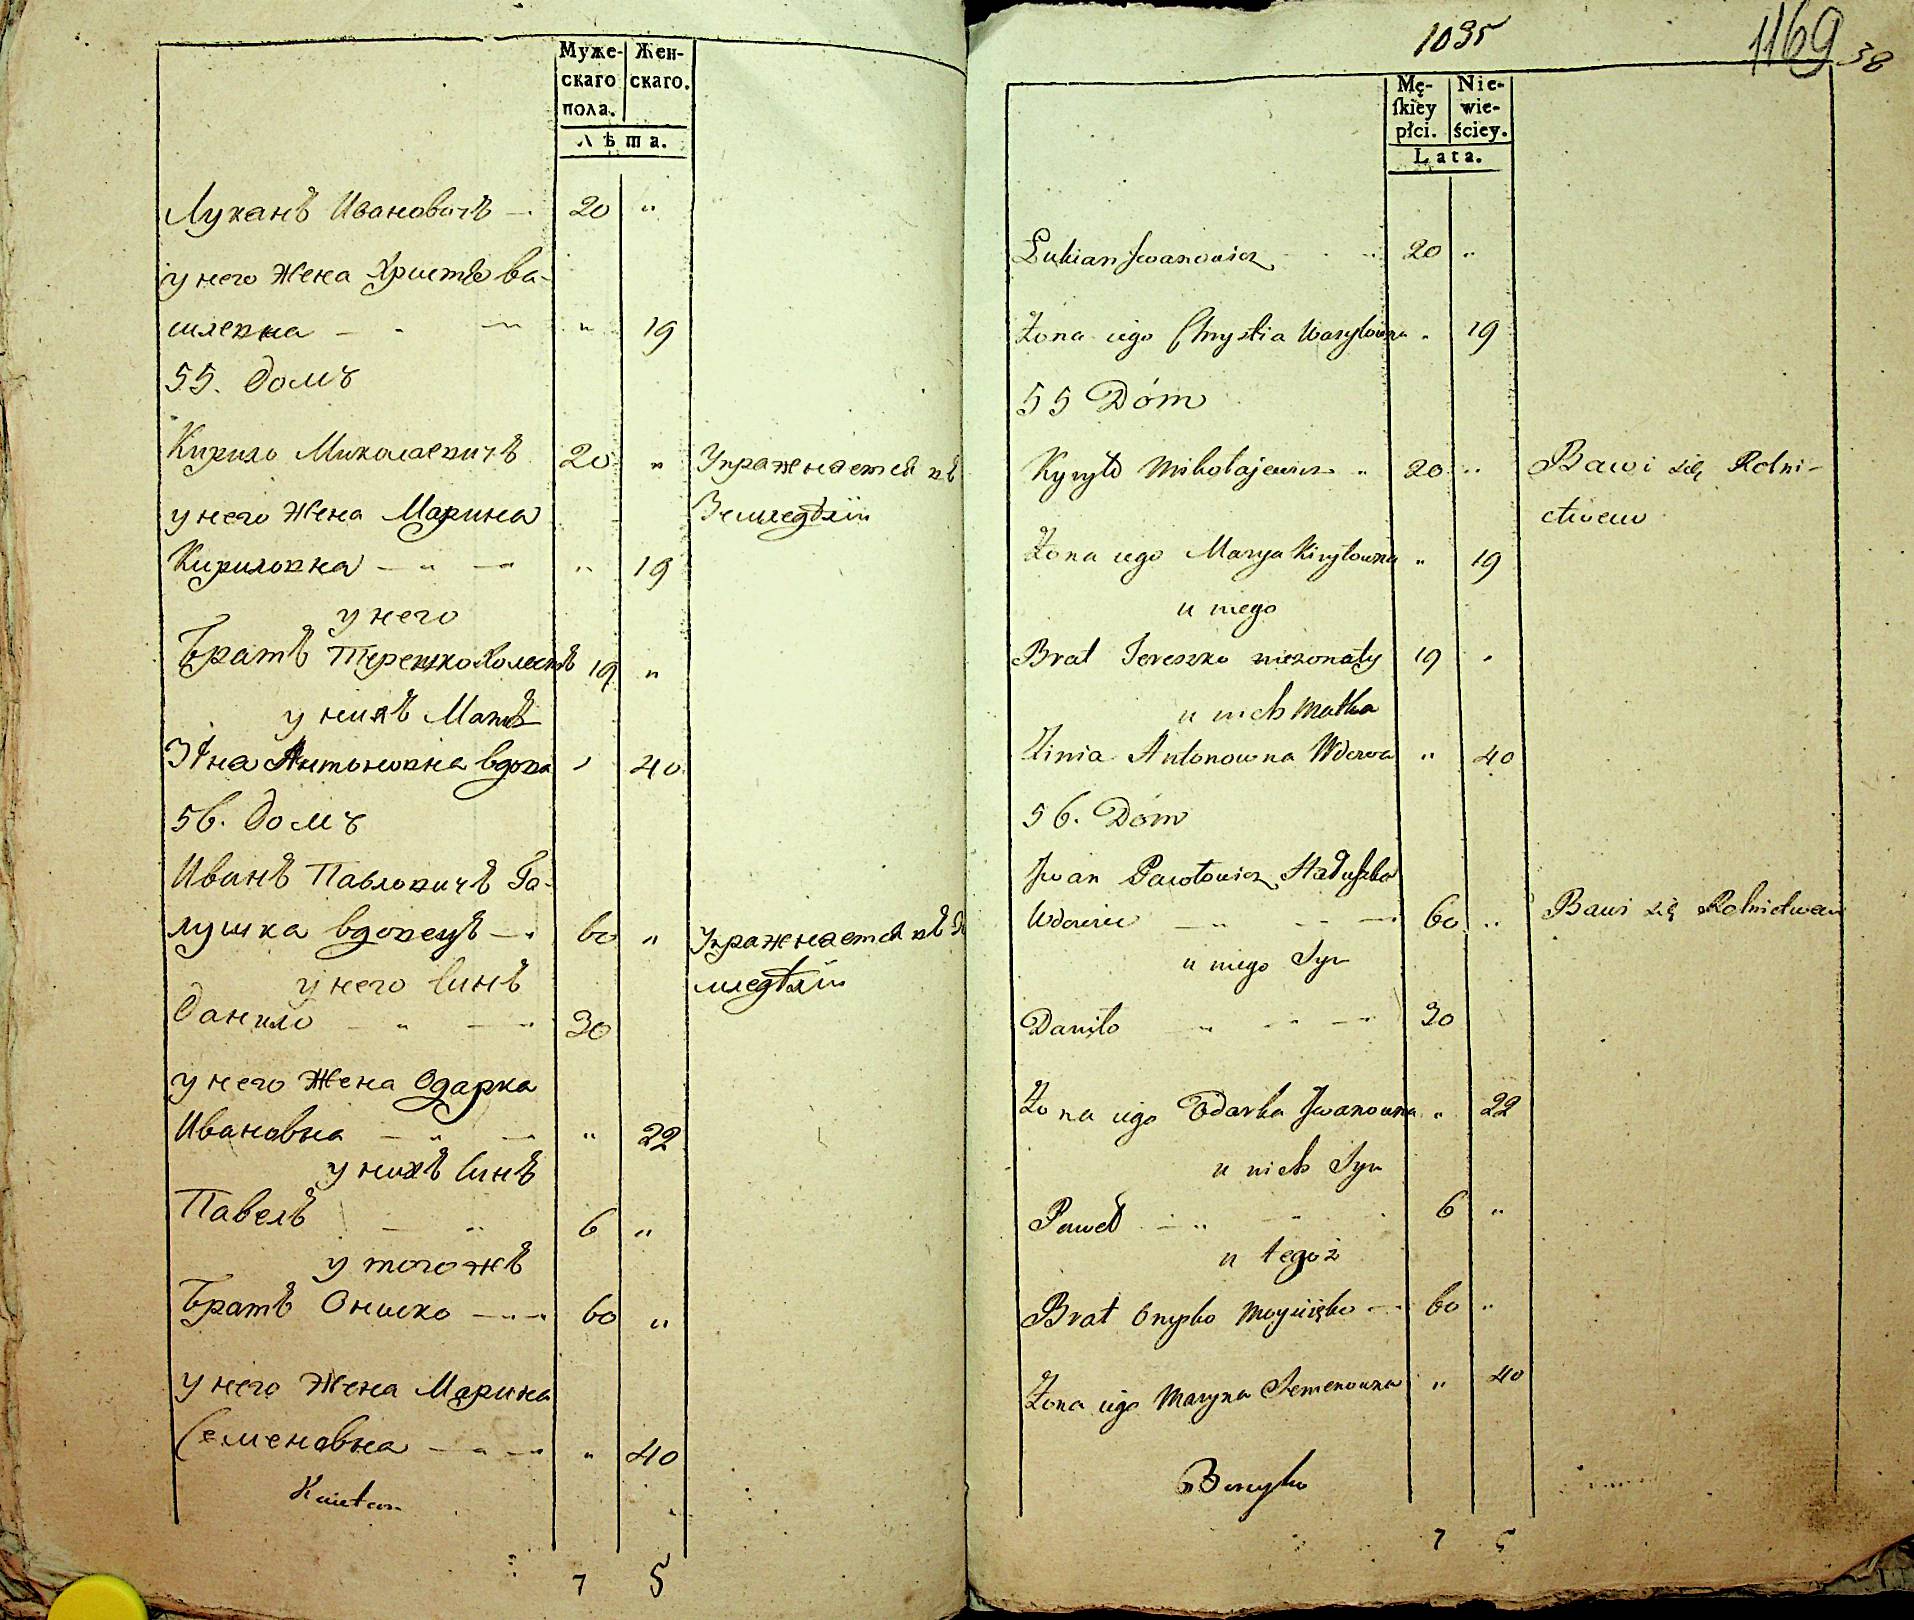 Муже- Жен-
скаго скаго.
пола.
Лѣта.
Луканъ Ивановичъ 20 "
у него Жена Христя Ва-
силевна " 19
55. Домъ
Кирило Миколаевичъ 20 " Упражнается въ
у него Жена Марина Земледѣлiи
Кириловна " 19
у него
Братъ Терешко Холостъ 19 "
у нихъ Мать
Антоновна вдова " 40
56. Домъ
Иванъ Павловичъ Га-
лушка вдовецъ 60 " Упражнается въ Зе
у него Синъ мледѣлiи
Данило 30
у него Жена Одарка
Ивановна " 22
у нихъ Синъ
Павелъ 6 "
у тогожъ
Братъ Ониско 60 "
у него Жена Марина
Семеновна " 40
7 5
1035
1169 38
Mę- Nie-
skiey wie-
płci. ściey.
Lata.
Lukian Iwanowicz 20 "
Żona iego Chrystia Wasylowna " 19
55 Dóm
Kyryło Mikołajewicz " 20 " Bawi się Rolni-
ctwem
Żona iego Marya Kiryłowna " 19
u niego
Brat Tereszko nieżonaty 19 "
u nich Matka
Antonowna Wdowa " 40
56. Dóm
Iwan Pawłowicz Hałuszka
Wdowiec 60 " Bawi się Rolnictwem
u niego Syn
Daniło 30
Żona iego Odarka Iwanowna " 22
u nich Syn
Paweł 6 "
u tegoż
Brat Onysko 60 "
Żona iego Maryna Semenowna " 40
7 5